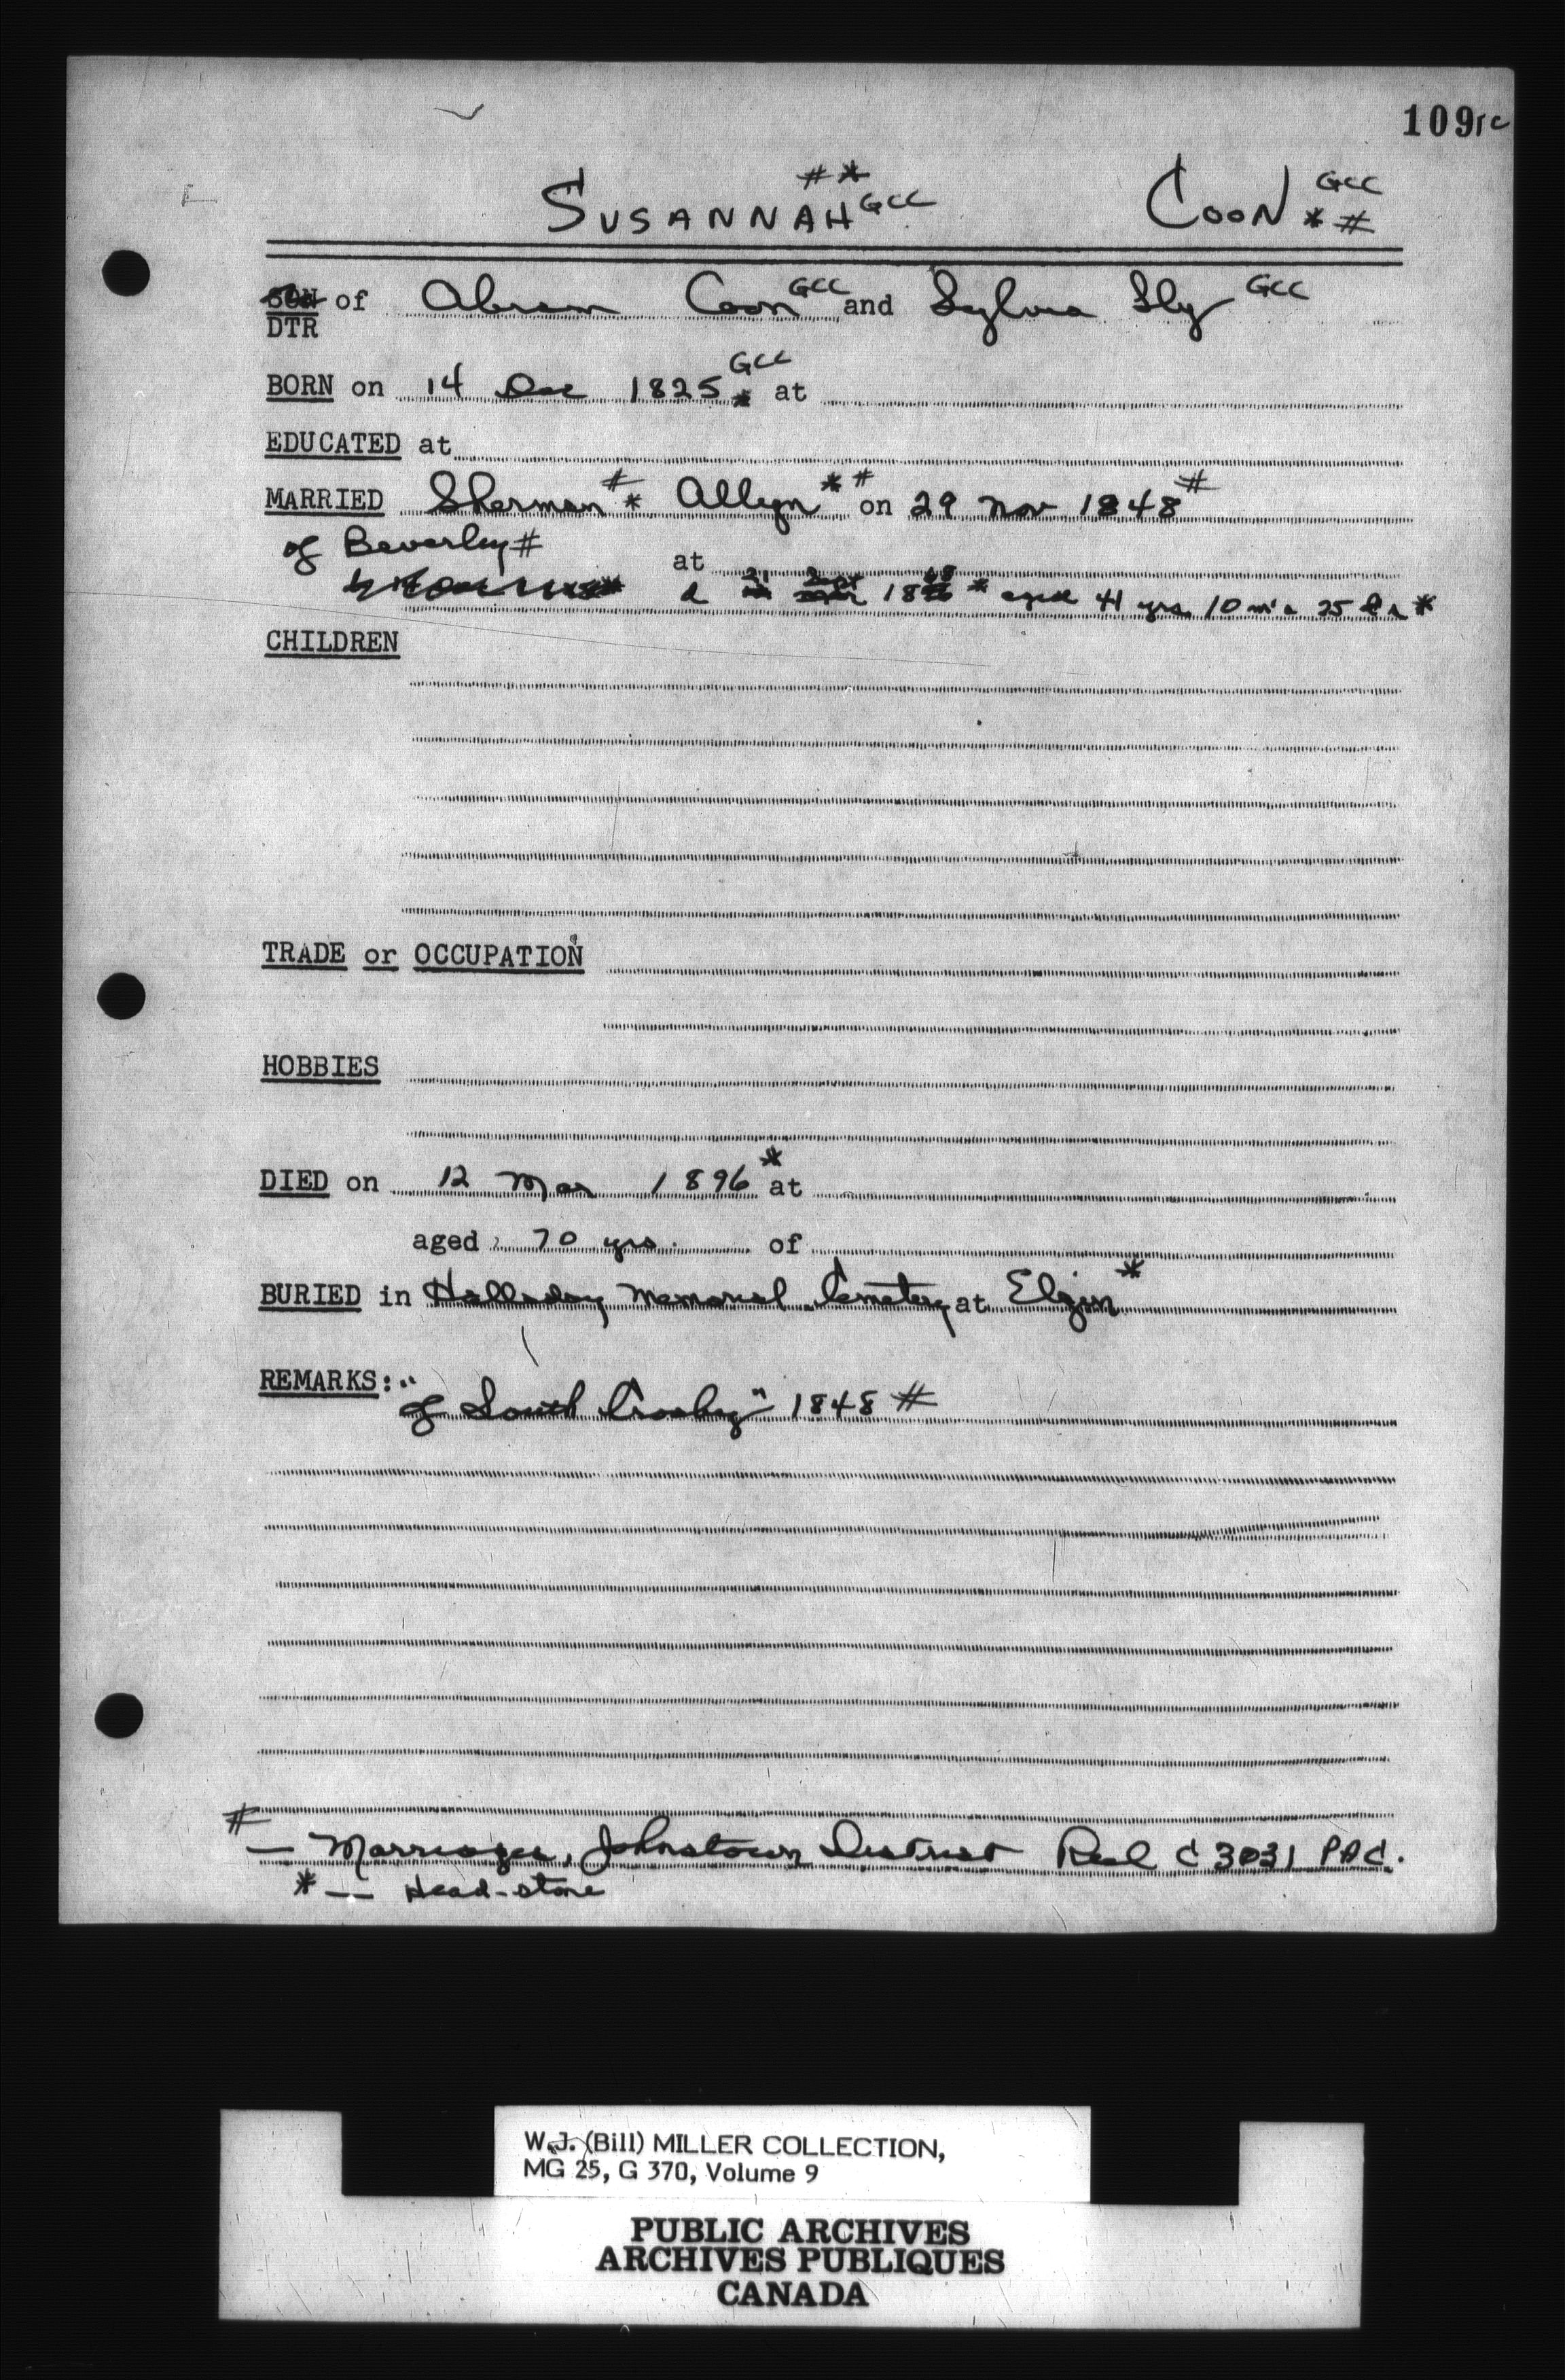 109
# *
SUSANNAH GCC COON GCC * #
SON of Abram Coon GCC and Sylvia Sly GCC
DTR
BORN on 14 Dec 1825 GCC * at
EDUCATED at
MARRIED Sherman # * Allyn * # on 29 Nov 1848 #
of Beverley # at
d 21 Sept 18 * aged 41 yrs 10 m's 25 ds *
CHILDREN
TRADE or OCCUPATION
HOBBIES
DIED on 12 Mar 1896 * at
aged 70 yrs. of
BURIED in Halladay Memorial Cemetery at Elgin *
REMARKS: "of South Crosby" 1848 #
# — Marriages, Johnstown District Reel C 3031 PAC.
* — Head-stone
W.J. (Bill) MILLER COLLECTION,
MG 25, G 370, Volume 9
PUBLIC ARCHIVES
ARCHIVES PUBLIQUES
CANADA